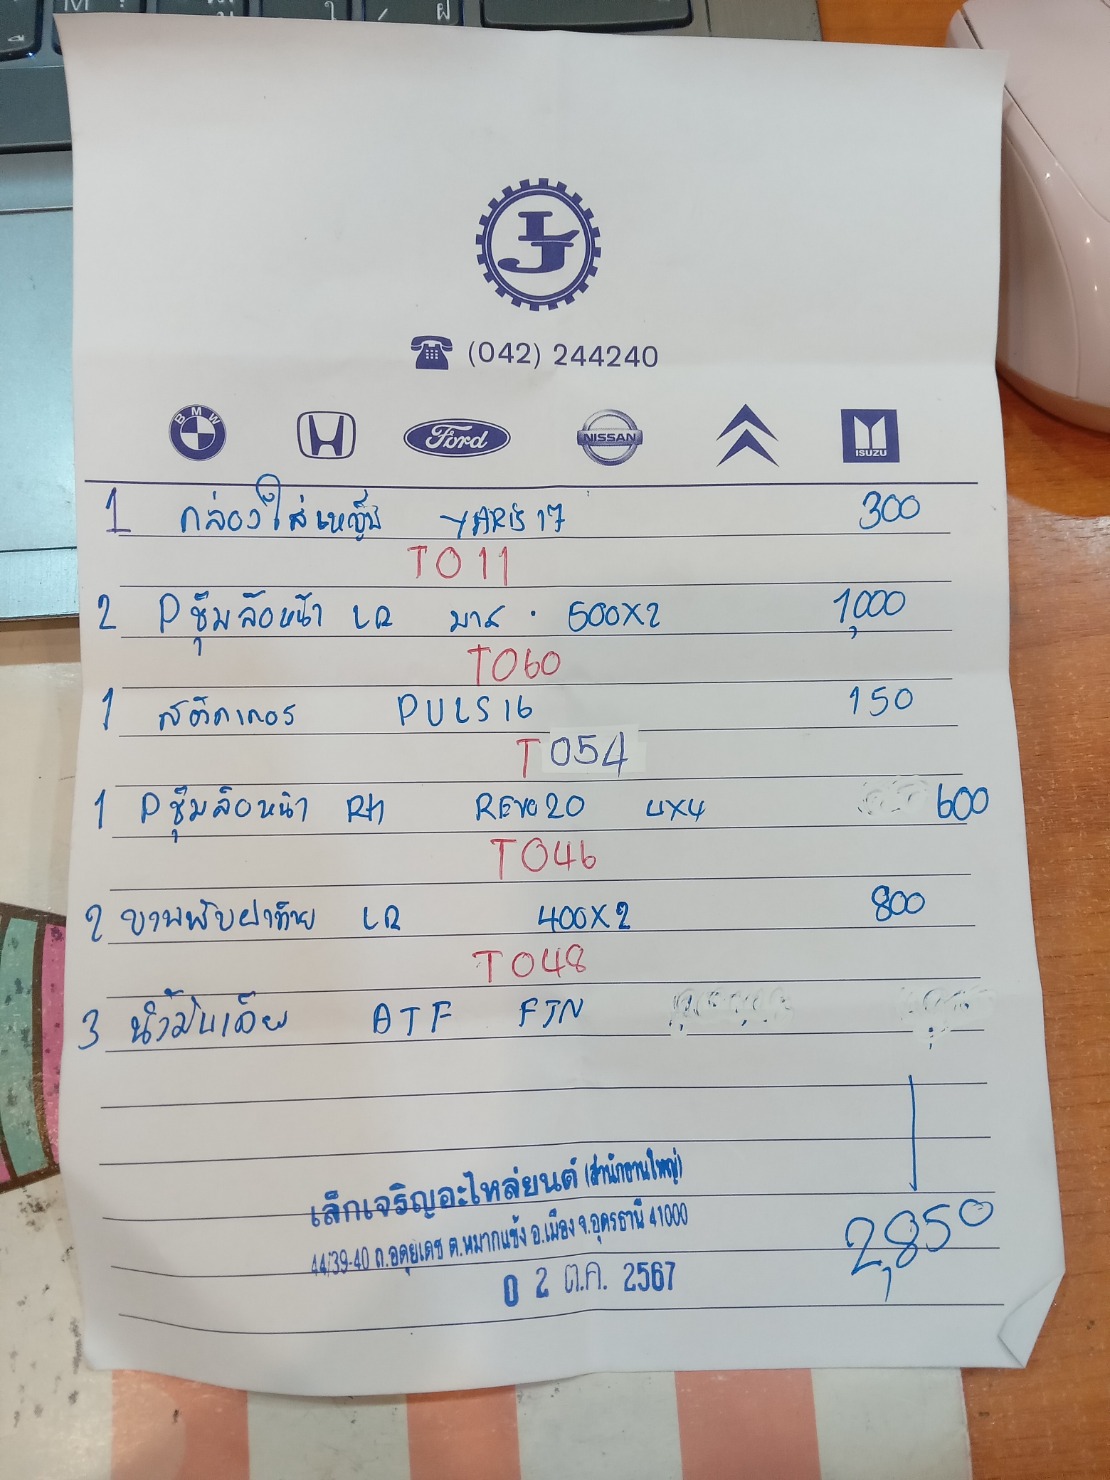 LJ
(042) 244240
BMW Ford NISSAN ISUZU
1 กล่องใส่เหรียญ YARIS 17 300
T011
2 P ซุ้มล้อหน้า LR มาส . 500X2 1,000
T060
1 สติกเกอร์ PULS 16 150
T054
1 P ซุ้มล้อหน้า RH REVO 20 4X4 600
T046
2 ขาพับฝาท้าย LR 400X2 800
T048
3 น้ำมันเกียร์ ATF FTN
2,850
เล็กเจริญอะไหล่ยนต์ (สำนักงานใหญ่)
44/39-40 ถ.อดุยเดช ต.หมากแข้ง อ.เมือง จ.อุดรธานี 41000
0 2 ต.ค. 2567